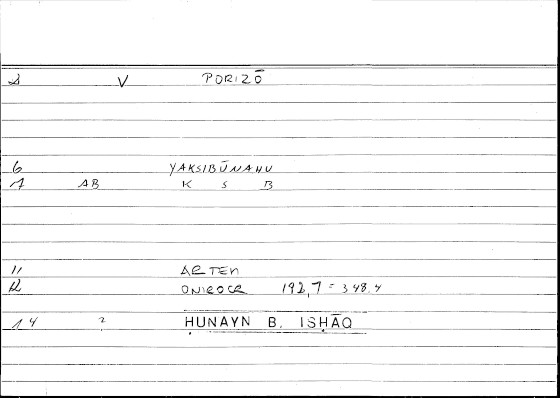 2 V PORIZŌ
6 YAKSIBŪNAHU
7 AB K S B
11 ARTEM
12 ONIROCR 192,7 = 348.4
14 2 ḤUNAYN B. ISḤĀQ